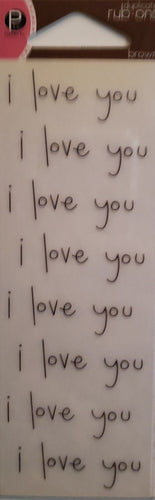 P
duplicate
rub-ons
brown
i love you
i love you
i love you
i love you
i love you
i love you
i love you
i love you